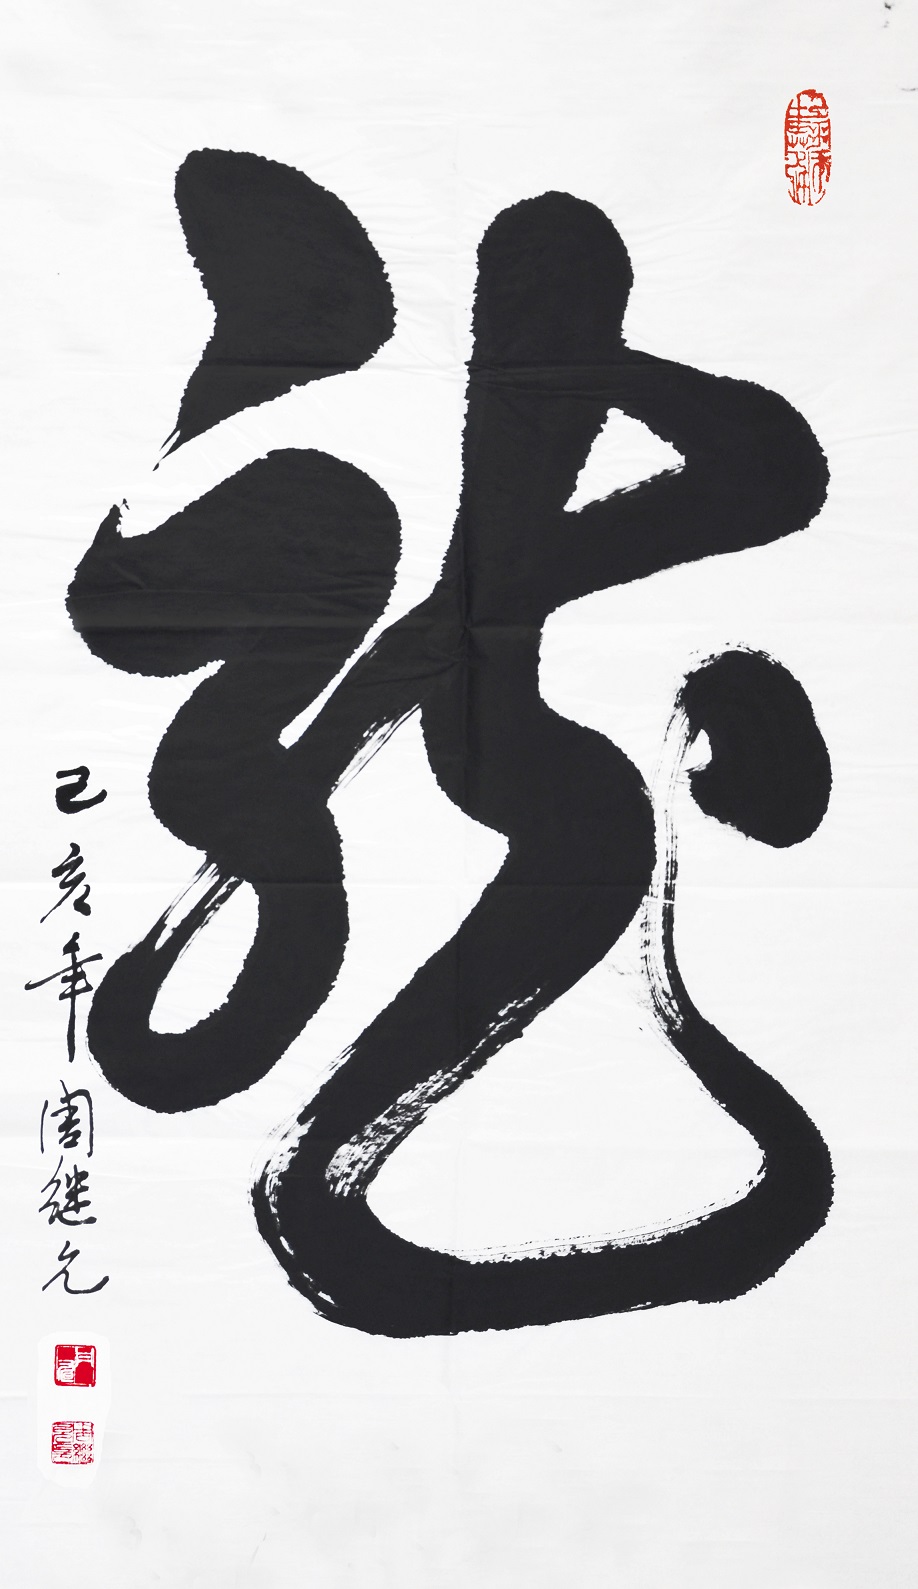 龍
己亥年周继允